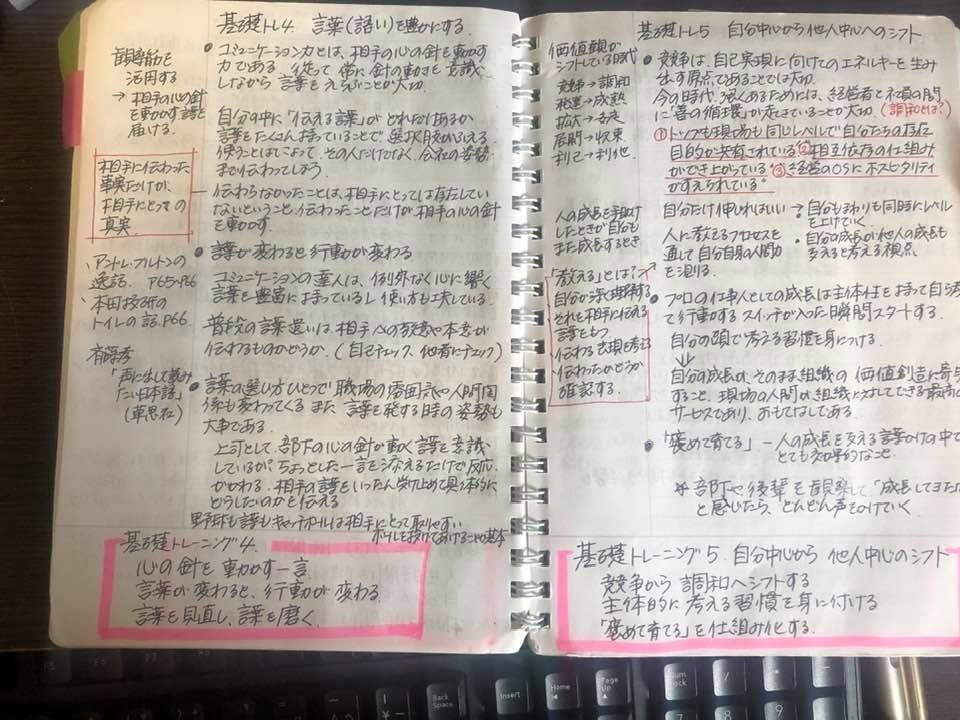 基礎トレ4. 言葉(語い)を豊かにする
表情筋を
活用する
→ 相手の心の針
を動かす言葉を
届ける.
相手に伝わった
事実だけが、
相手にとっての
真実.
アントレ・フルトンの
逸話. P65-P66
本田技研の
トイレの話.P66.
齋藤孝
「声に出して読み
たい日本語」
(草思社)
● コミュニケーション力とは、相手の心の針を動かす
力である. 従って 常に針の動きを意識
しながら 言葉をえらぶことが大切.
自分の中に「伝える言葉」が どれだけあるか
言葉をたくさん持っていることで 選択肢がふえる.
使うことばによって、その人だけでなく、会社の姿勢
まで伝わってしまう.
伝わらなかったことは、相手にとっては存在してい
ないということ. 伝わったことだけが、相手の心の針
を動かす.
● 言葉が変わると 行動が変わる
コミュニケーションの達人は、例外なく心に響く
言葉を豊富にもっているし 使い方も工夫している.
普段の言葉遣いは 相手への敬意や本意が
伝わるものかどうか. (自己チェック、他者にチェック)
● 言葉の選い方ひとつで 職場の雰囲気や人間関
係も変わってくる また、言葉を発する時の姿勢も
大事である.
上司として、部下の心の針が動く言葉を意識
しているか? ちょっとした一言を添えるだけで反応
がかわる. 相手の言葉をいったん受け止めて具体的に
どうしたいのかを伝える
野球も言葉もキャッチボールは相手にとって取りやすい
ボールを投げてあげることが基本
基礎トレーニング4.
心の針を動かす一言
言葉が変わると、行動が変わる.
言葉を見直し、言葉を磨く.
基礎トレ5 自分中心から他人中心へのシフト
価値観が
シフトしている時代
競争→調和
発達→成熟
拡大→安定
展開→収束
利己→利他.
人の成長を手助け
したときが自分も
また成長するとき
「教える」とは?
自分が深く理解する
それを相手に伝える
言葉をもつ
伝わる表現を考える
伝わったかどうか
確認する.
● 競争は、自己実現に向けてのエネルギーを生み
出す原点であることでは大切.
今の時代、強くあるためには、経営者と社員の間
に「善の循環」ができていることが大切. (調和とは?)
①トップも現場も同じレベルで自分たちの存在
目的が共有されている ②相互依存の仕組み
ができ上がっている ③経営のOSにホスピタリティ
がすえられている
自分だけ伸びればいい → 自分もまわりも同時にレベル
を上げていく
人に教えるプロセスを
通して自分自身の人間力
を測る.
・自分の成長が他人の成長も
支えると考える視点.
● プロの仕事人としての成長は主体性をもって自ら考え
て行動する スイッチが入った瞬間スタートする.
自分の頭で考える習慣を身につける.
↓
自分の成長が、そのまま組織の 価値創造に寄与
すること. 現場の人間が組織に対してできる最高の
サービスであり、おもてなしである.
● 「褒めて育てる」 ― 人の成長を支える言葉かけの中で
とても効果的なこと.
* 部下や後輩を観察して、「成長してきたな」
と感じたら、どんどん声をかけていく.
基礎トレーニング5. 自分中心から 他人中心のシフト
競争から 調和へシフトする
主体的に 考える習慣を身に付ける
「褒めて育てる」を仕組み化する.
F5
F6
F7
F8
Back
Space
Insert
Home
Page
Up
Num
Lock
7
8
9